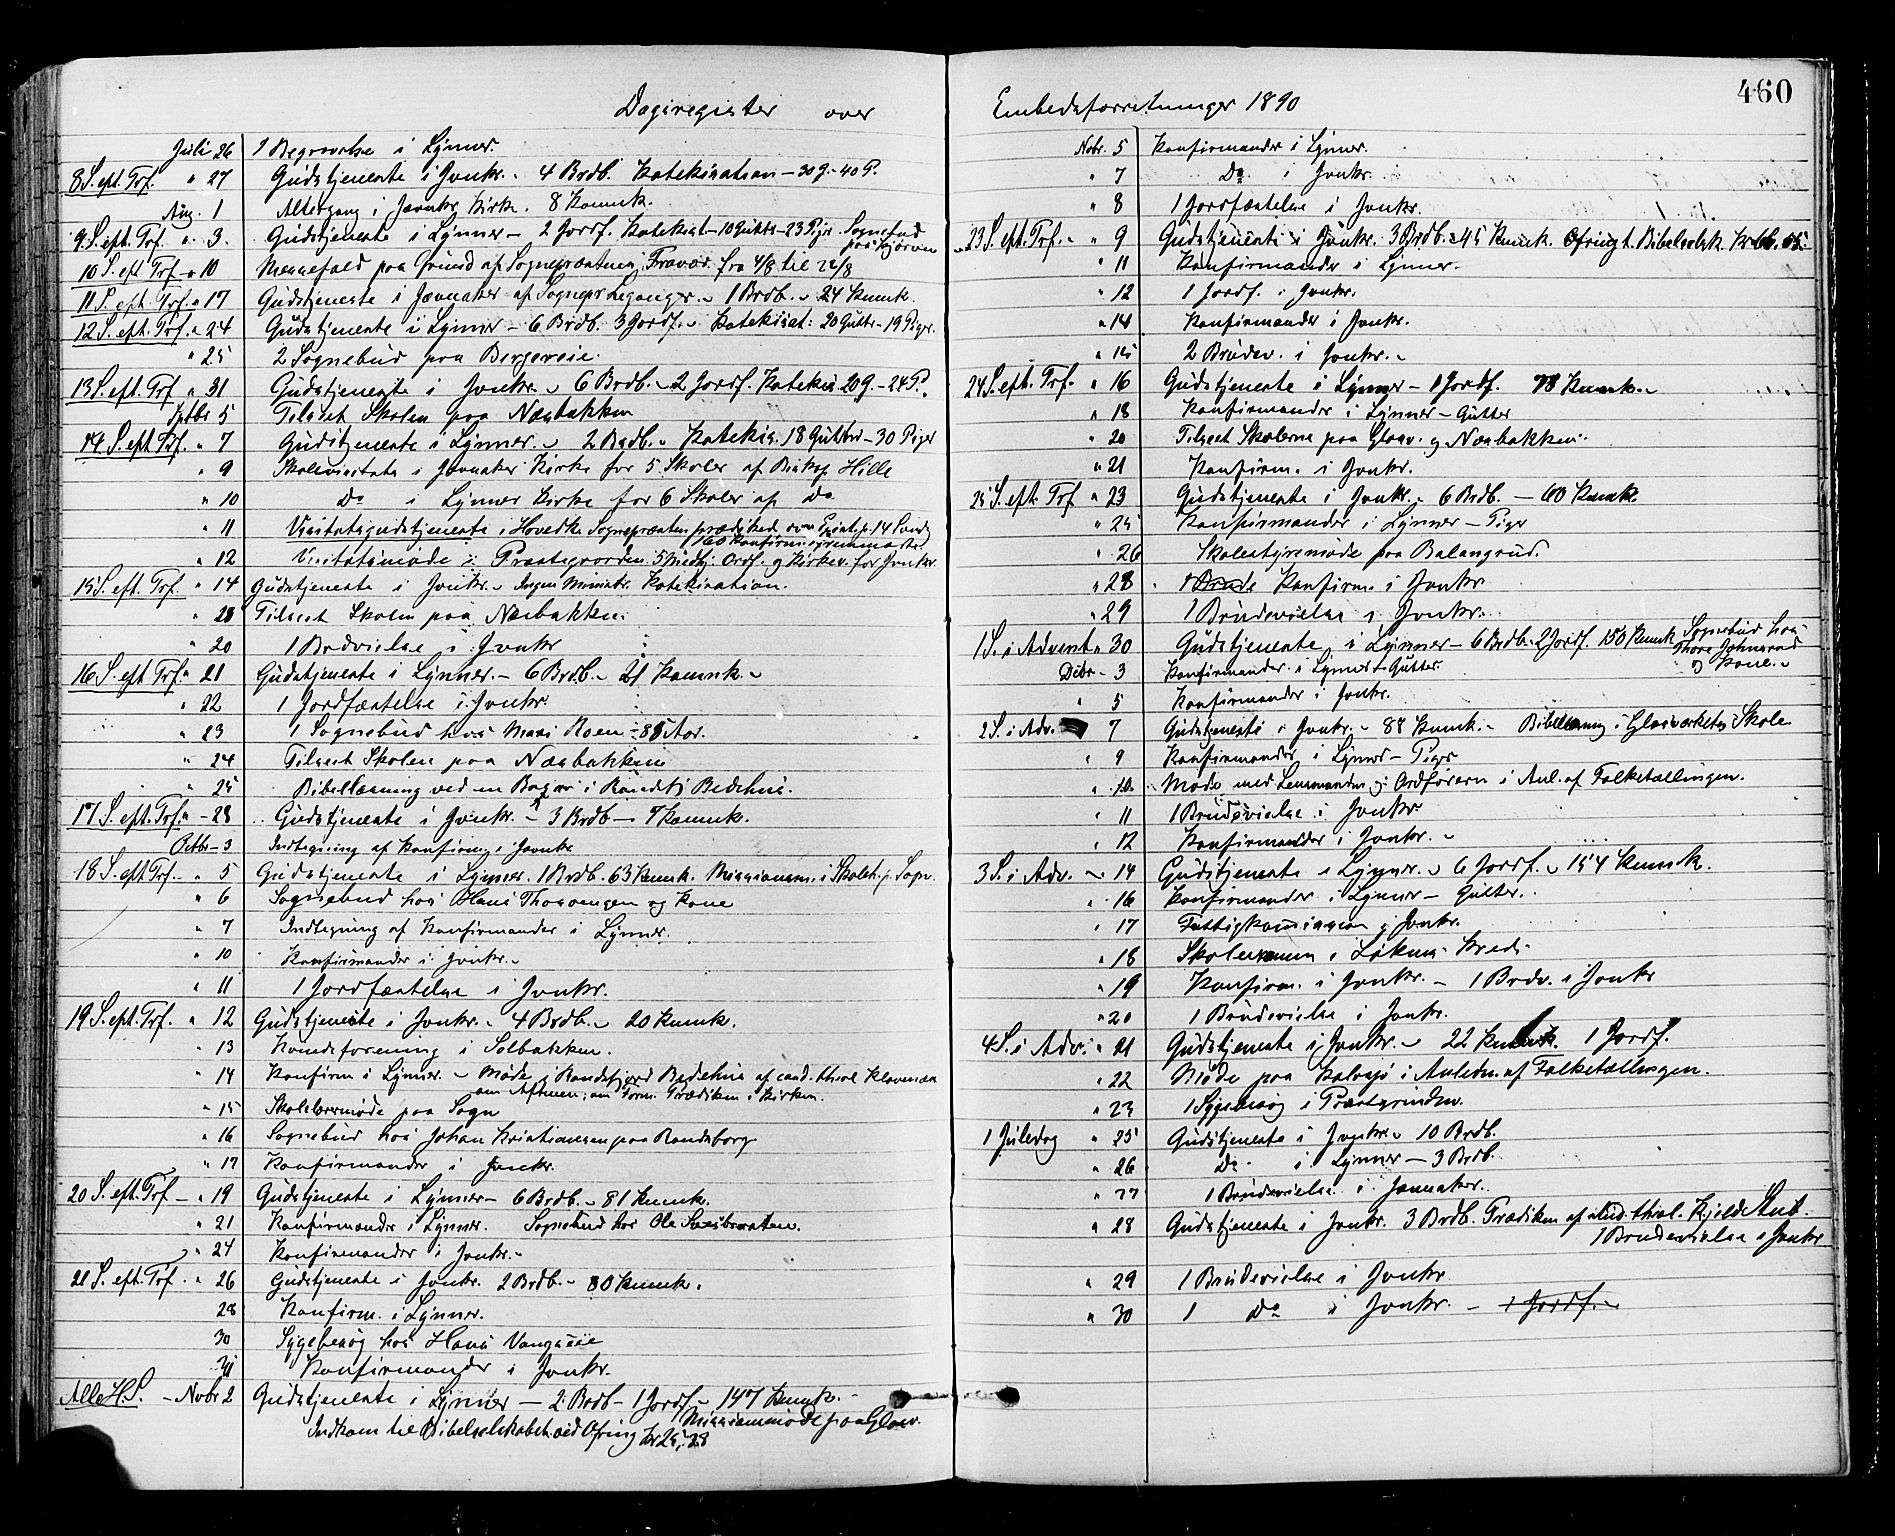 460
Dagsregister over
Juli 26 1 Begravelse i Lynner.
8 S. eft. Trf. " 27 Gudstjeneste i Jvnkr. 4 Brdb. Katekisation – 30 G. – 40 P.
Aug. 1 Altergang i Jævnkr Kirke. 8 Komnk.
9. S. eft. Trf. " 3. Gudstjeneste i Lynner – 2 Jordf. Katekisat – 10 Gutter – 23 Piger. Sognebud
paa
10 S. eft Trf " 10 Messefald paa Grund af Sognepræstens Fravær fra 4/8 til 22/8
11 S. eft. Trf. " 17 Gudstjeneste i Jævnaker af Sognepr. – 1 Brdb. – 24 Kmnk.
12 S. eft. Trf. " 24 Gudstjeneste i Lynner – 6 Brdb. 3 Jordf. – Katekisat: 20 Gutter – 19 Piger.
" 25 2 Sognebud paa Bergereie.
13 S. eft. Trf " 31 Gudstjeneste i Jvnkr. – 6 Brdb. – 2 Jordf. Katekis. 20 G. – 24 P.
Sptbr 5 Tilseet Skolen paa Næsbakken
14. S. eft Trf. " 7 Gudstjeneste i Lynner. – 2 Brdb. – Katekis. 18 Gutter – 30 Piger
" 9 Skolevisitats i Jævnaker Kirke for 5 Skoler af Biskop Hille
" 10 Do i Lynner Kirke for 6 Skoler af do
" 11 Visitatsgudstjeneste i Hovedk. Sognepræsten prædiked over
160 Konfirm.
" 12 Visitatsmøde i Præstegaarden. Ordf. og Kirkev. for Jvnkr.
15 S. eft. Trf. " 14 Gudstjeneste i Jvnkr. – Ingen Ministr. Katekisation.
" 28 Tilseet Skolen paa Næsbakken.
" 20 1 Brdvielse i Jvnkr
16 S. eft Trf. " 21 Gudstjeneste i Lynner. – 6 Brdb. – 21 Komnk. –
" 22 1 Jordfæstelse i Jvnkr.
" 23 1 Sognebud hos Mari Roen – Aar.
" 24 Tilseet Skolen paa Næsbakken
" 25 Bibellæsning ved en i Randsfj Bedehus.
17 S. eft. Trf. " – 28 Gudstjeneste i Jvnkr. – 3 Brdb – 7 Komnk.
Octbr – 3 Indtegning af Konfirm. i Jævnkr
18 S. eft Trf. – " 5 Gudstjeneste i Lynner. 1 Brdb. 63 Kmnk. Missionsm. i Skoleh. p. Sogn.
" 6 Sognebud hos Hans Thorvengen og Kone
" 7 Indtegning af Konfirmander i Lynner.
" 10 Konfirmander i Jvnkr. –
" 11 1 Jordfæstelse i Jvnkr.
19 S. ept. Trf. " 12 Gudstjeneste i Jvnkr. – 4 Brdb. – 20 Kmnk.
" 13 Kvindeforening i Solbakken.
" 14 Konfirm i Lynner. – Møde i Randsfjord Bedehus af cand. theol Klavenæs
om Aftenen; om Form. Prædiken i Kirken.
" 15 Skolelærermøde paa Sogn
" 16 Sognebud hos Johan Kristiansen paa Randsborg
" 17 Konfirmander i Jvnkr.
20 S. eft. Trf – " 19 Gudstjeneste i Lynner – 6 Brdb. – 81 Kmnk.
" 21 Konfirmander i Lynner. Sognebud hos Ole
" 24 Konfirmander i Jvnkr. –
21 S. eft. Trf. " 26 Gudstjeneste i Jvnkr. 2 Brdb. – 80 Kmnk.
28 Konfirm. i Lynner.
30 Sygebesøg hos Hans Vangseie
31 Konfirmander i Jvnkr.
Alle H. S. – Novbr 2 Gudstjeneste i Lynner – 2 Brdb – 1 Jordf – 147 Kmnk. –
Missionsmøde paa Glasv.
Indkom til Bibelselskabet ved Ofring Kr 25,28
Embedsforretninger 1890
Nvbr. 5 Konfirmander i Lynner.
" 7 Do i Jvnkr.
" 8 1 Jordfæstelse i Jvnkr.
23 S. eft. Trf. – " 9 Gudstjeneste i Jvnkr. 3 Brdb. – 45 Kmnk. Ofring t. Bibelselsk. Kr
" 11 Konfirmander i Lynner.
" 12 1 Jordf. i Jvnkr.
" 14 Konfirmander i Jvnkr.
" 15 2 Brudev. i Jvnkr. –
24 S. eft. Trf. " 16 Gudstjeneste i Lynner – 1 Jordf. 78 Kmnk. –
" 18 Konfirmander i Lynner – Gutter
" 20 Tilseet Skolerne paa Glasv. og Næsbakken.
" 21 Konfirm. i Jvnkr.
25 S. eft. Trf " 23 Gudstjeneste i Jvnkr – 6 Brdb. – 60 Kmnk.
" 25 Konfirmander i Lynner – Piger
" 26 Skolestyremøde paa Balangrud.
" 28 1 Brude Konfirm. i Jvnkr
" 29 1 Brudevielse i Jvnkr.
1 S. i Advent " 30 Gudstjeneste i Lynner – 6 Brdb. 2 Jordf. 150 Kmnk. Sognebud hos
Thore Johnsrud
og Kone. –
Dcbr – 3 Konfirmander i Lynner – Gutter
" 5 Konfirmander i Jvnkr.
2 S. i Adv. 7 Gudstjeneste i Jvnkr. – 88 Kmnk. – Bibellæsning i Glasværkets Skole.
" 9 Konfirmander i Lynner – Piger
" 10 Møde med Lensmanden og Ordføreren i Anl. af Folketællingen.
" 11 1 Brudevielse i Jvnkr
" 12 Konfirmander i Jvnkr. –
3 S. i Adv. – 14 Gudstjeneste i Lynner. – 6 Jordf. – 154 Kmnk.
" 16 Konfirmander i Lynner – Gutter.
" 17 Fattigkommission i Jvnkr.
" 18 Skoleexamen i Løkens Kreds
" 19 Konfirm. i Jvnkr. – 1 Brdv. i Jvnkr
" 20 1 Brudevielse i Jvnkr.
4 S. i Adv. " 21 Gudstjeneste i Jvnkr. – 22 Kmnk. 1 Jordf.
" 22 Møde paa Kalvsjø i Anledn. af Folketællingen.
" 23 1 Sygebesøg i Præstgrinden.
1 Juledag " 25 Gudstjeneste i Jvnkr – 10 Brdb.
" 26 Do. i Lynner – 3 Brdb.
" 27 1 Brudevielse i Jævnaker.
" 28 Gudstjeneste i Jvnkr. 3 Brdb. Prædiken af stud. theol. Kjeld Stub.
1 Brudevielse i Jvnkr
" 29 1 Brudevielse i Jvnkr
" 30 1 Do i Jvnkr. – 1 Jordf. –